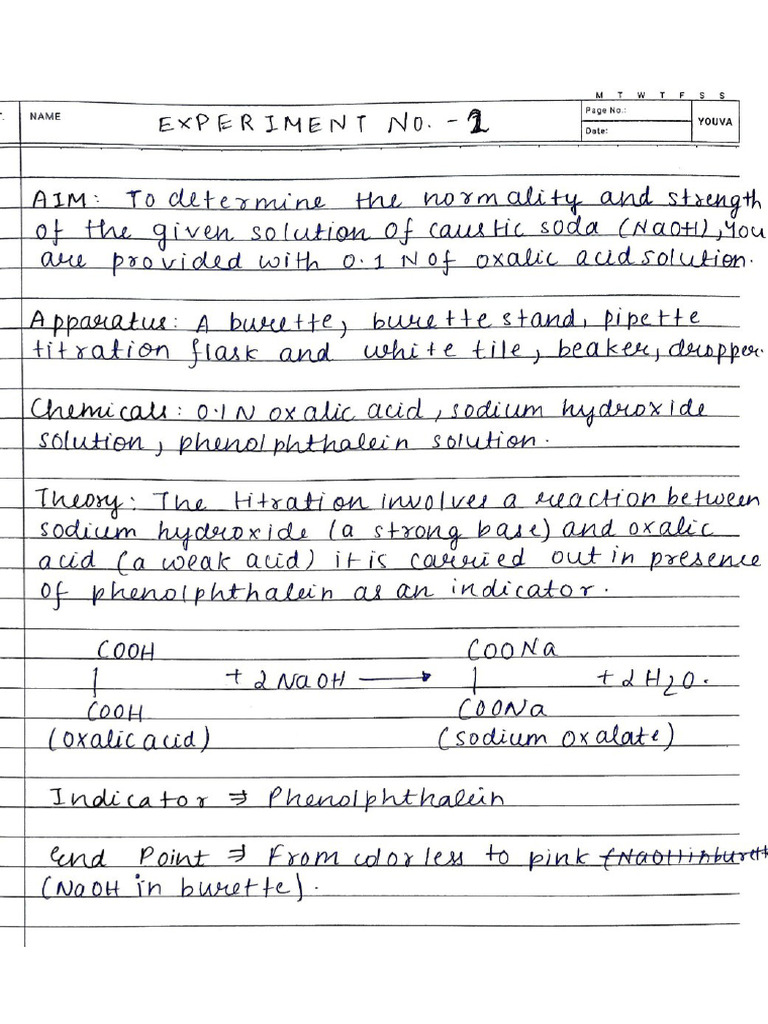 M T W T F S S
T. NAME EXPERIMENT NO. - 1 Page No.: YOUVA
Date:
AIM: To determine the normality and strength
of the given solution of caustic soda (NaOH), You
are provided with 0.1 N of oxalic acid solution.
Apparatus: A burette, burette stand, pipette
titration flask and white tile, beaker, dropper.
Chemicals: 0.1 N oxalic acid, sodium hydroxide
solution, phenolphthalein solution.
Theory: The titration involves a reaction between
sodium hydroxide (a strong base) and oxalic
acid (a weak acid) it is carried out in presence
of phenolphthalein as an indicator.
COOH COONa
| + 2 NaOH ⟶ | + 2 H2O.
COOH COONa
(oxalic acid) (sodium oxalate)
Indicator ⇒ Phenolphthalein
End Point ⇒ From colorless to pink (NaOH in burett
(NaOH in burette).